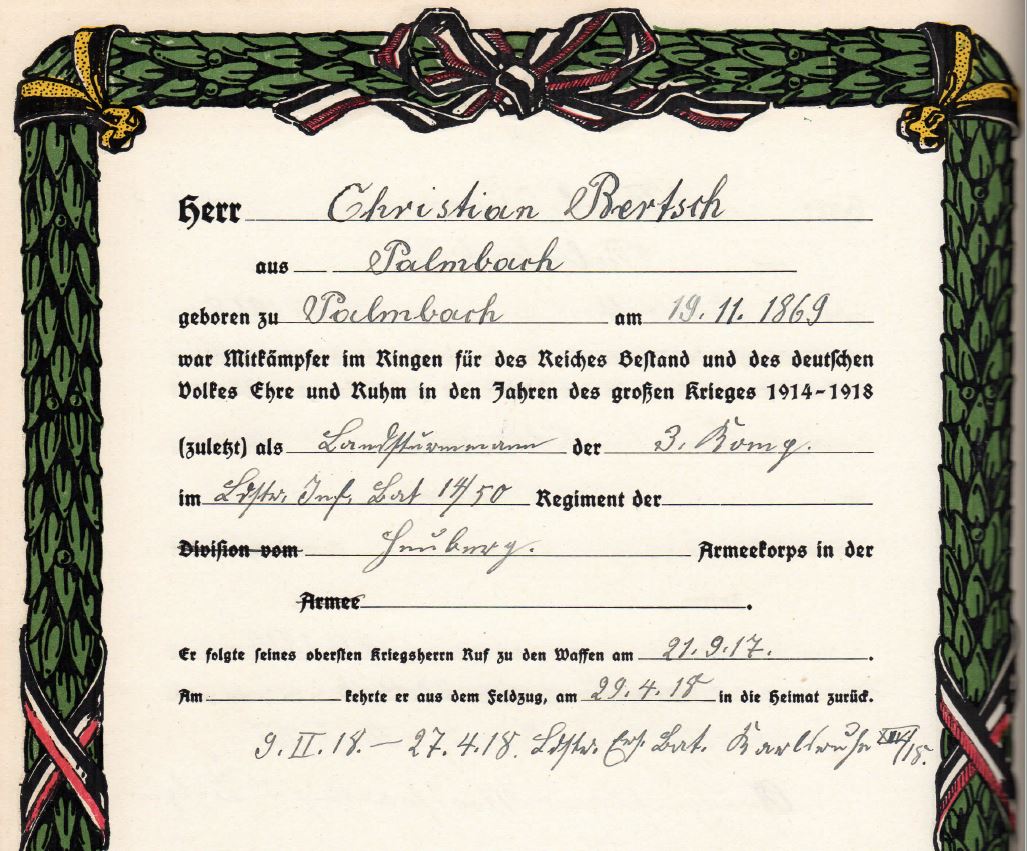 Herr Christian Bertsch
aus Palmbach
geboren zu Palmbach am 19. 11. 1869
war Mitkämpfer im Ringen für des Reiches Bestand und des deutschen
Volkes Ehre und Ruhm in den Jahren des großen Krieges 1914-1918
(zuletzt) als Landsturmmann der 3. Komp.
im Ldstr. Inf. Bat 14/50 Regiment der
Division vom Heuberg. Armeekorps in der
Armee .
Er folgte seines obersten Kriegsherrn Ruf zu den Waffen am 21. 9. 17. .
Am kehrte er aus dem Feldzug, am 29. 4. 18 in die Heimat zurück.
9. II. 18. — 27. 4. 18. Ldstr. Ers. Bat. Karlsruhe